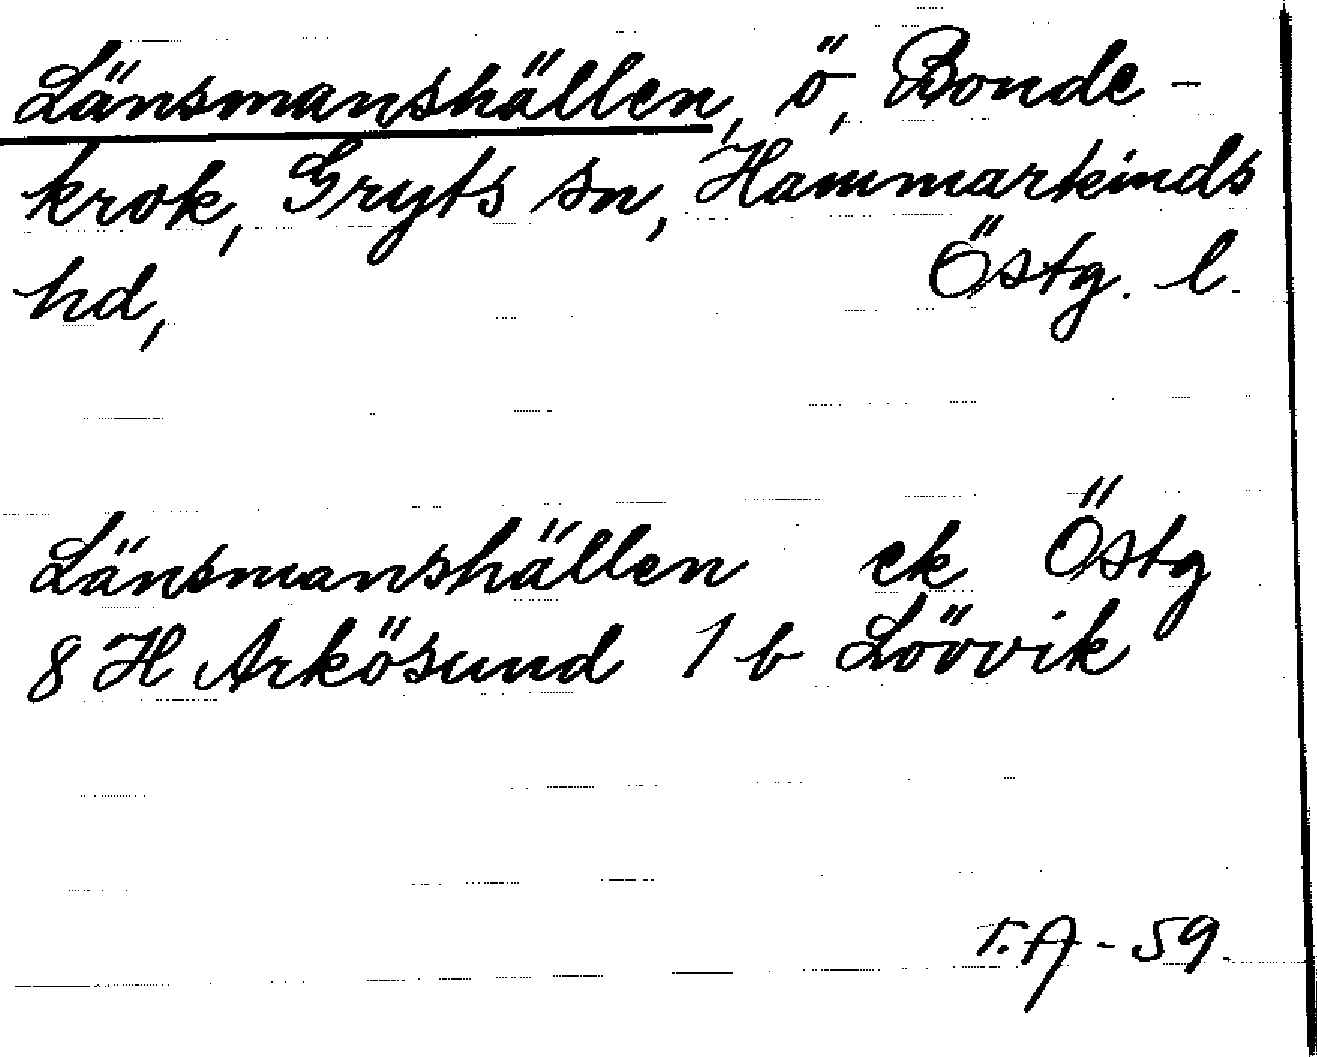 Länsmanshällen, ö, Bonde-
krok, Gryts sn, Hammarkinds
hd, Östg. l.
Länsmanshällen ek Östg
8 H Arkösund 1 b Lövvik
T.A - 59.